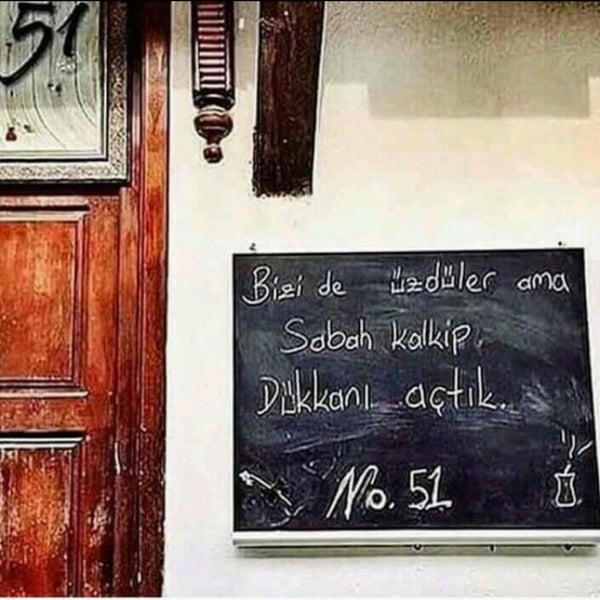 51
Bizi de üzdüler ama
Sabah kalkip,
Dükkanı açtık.
No. 51